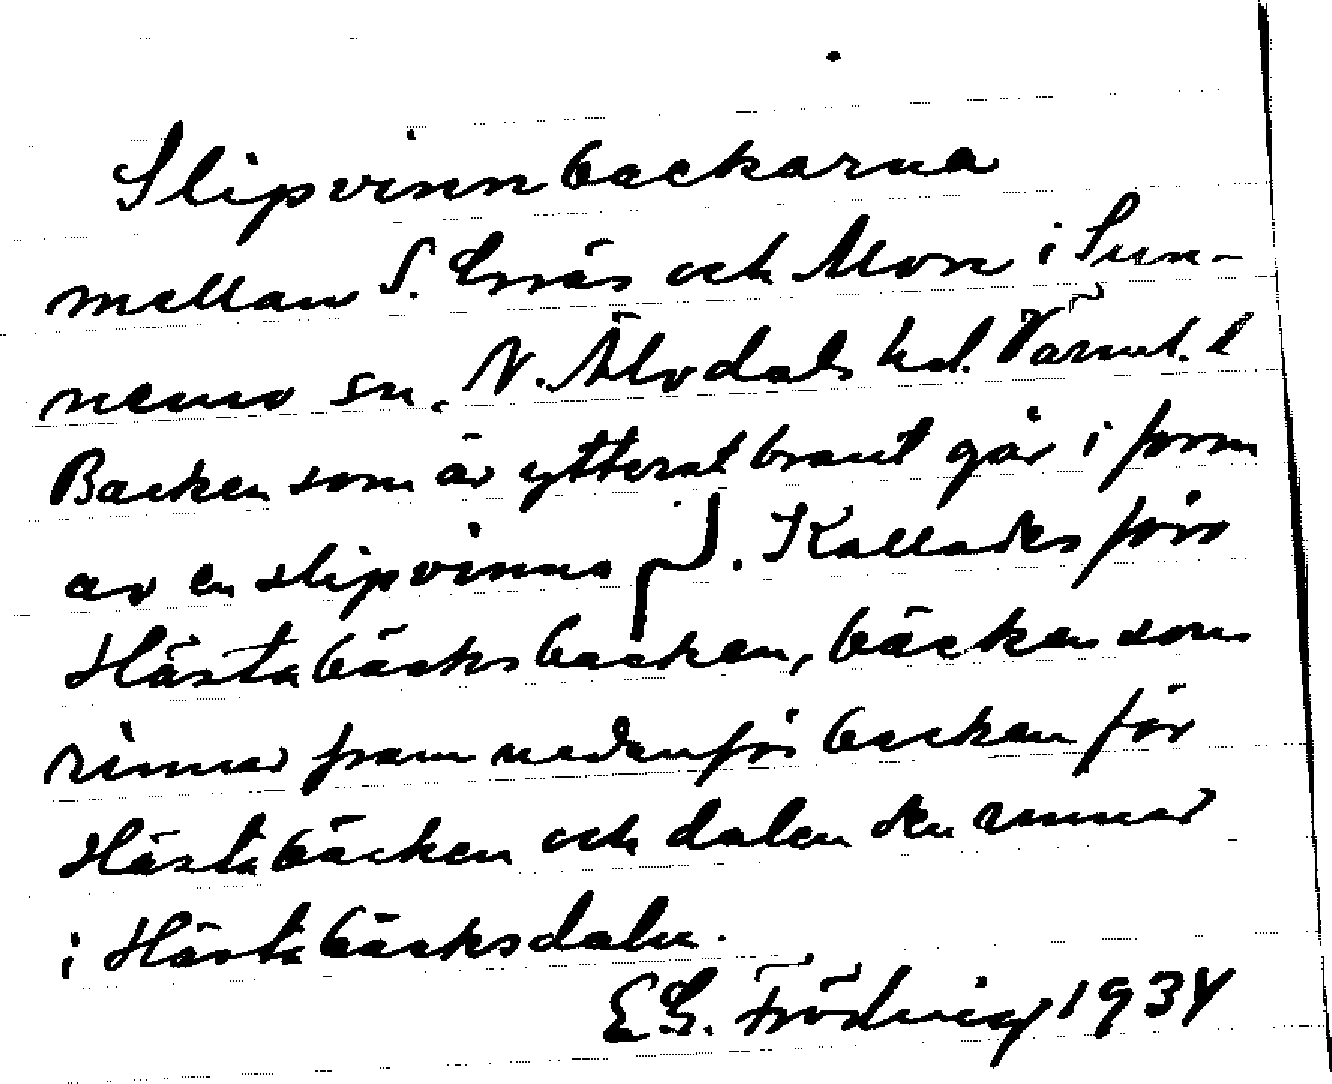 Slipvinnbackarna
mellan S. Ennäs och Mon i Sun-
nemo sn. N. Älvdals hd. Värml. l
Backen som är ytterst brant går i form
av en slipvinna. Kallades förr
Hästabäcksbacken, bäcken som
rinner fram nedanför backen för
Hästabäcken och dalen den rinner
i Hästabäcksdalen.
E.G. Frödwig 1934